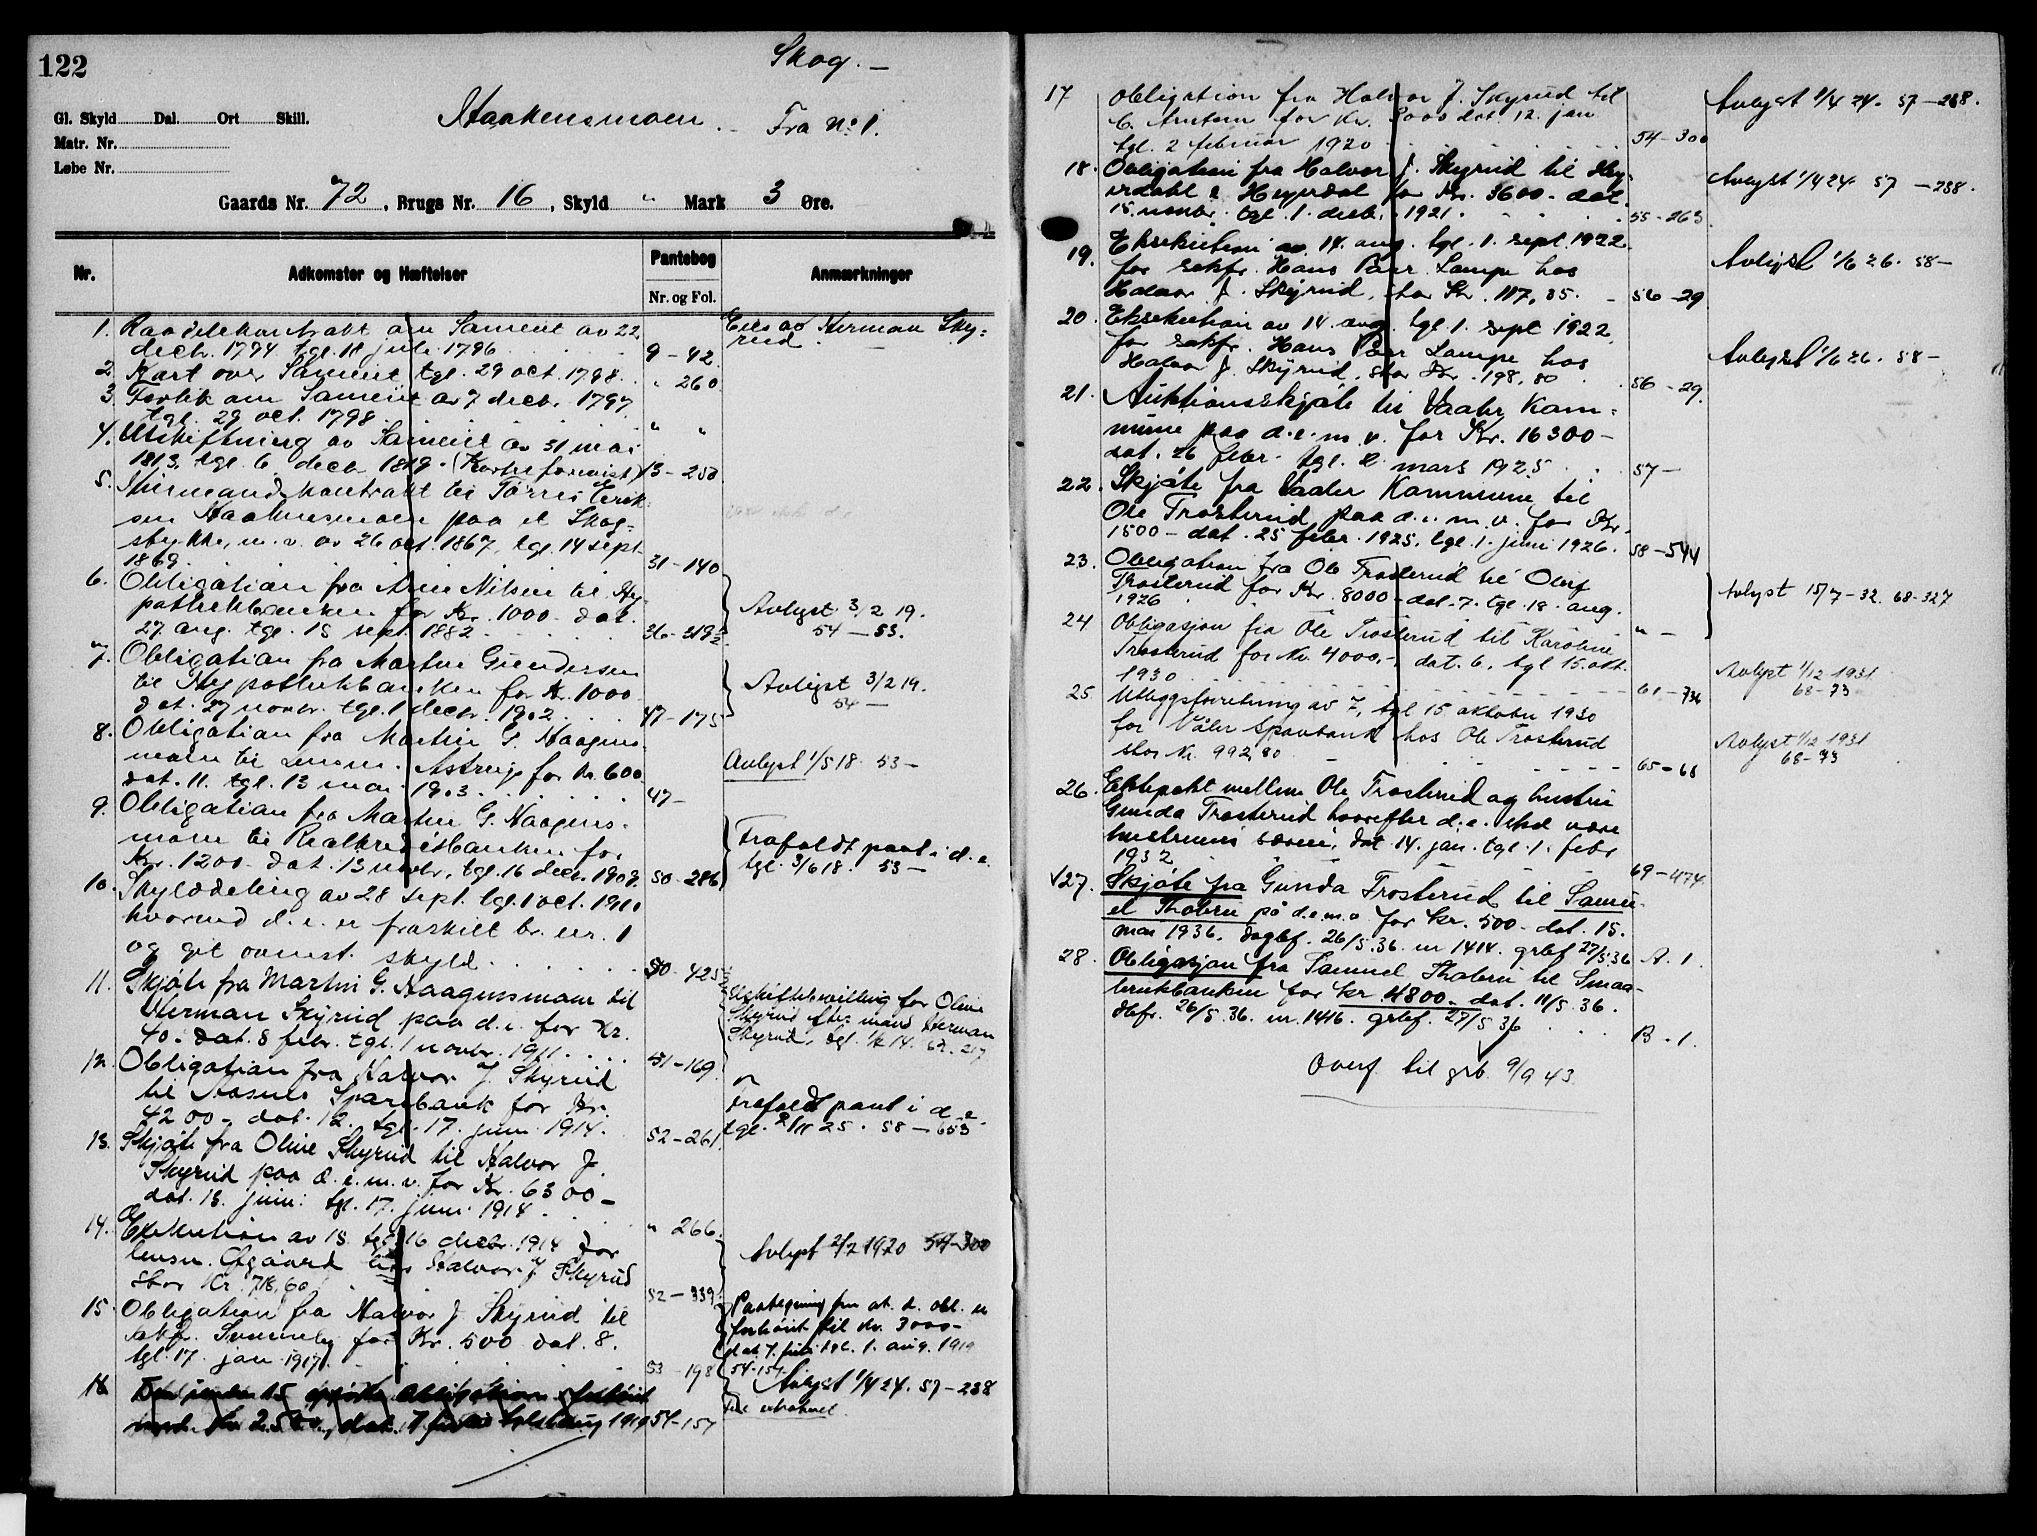 122
Skog. —
Gl. Skyld Dal. Ort Skill.
Haakensmoen. Fra No. 1.
Matr. Nr.
Løbe Nr.
Gaards Nr. 72, Brugs Nr. 16, Skyld " Mark 3 Øre.
Nr. Adkomster og Hæftelser Pantebog Anmærkninger
Nr. og Fol.
1. Raadelskontrakt om Sameiet av 22
decbr. 1794 tgl. 18 juli 1796 9-42
Eies av Herman Sky-
rud
2. Kart over Sameiet tgl. 29 oct. 1798. " 260
3. Forlik om Sameiet av 7 decbr. 1797
tgl. 29 oct. 1798 " "
4. Utskiftning av Sameiet av 31 mai
1813, tgl. 6 decbr 1819. 13-250
5. kontrakt til Tørris Erik-
sen Haakensmoen paa et Skog-
stykke, m. v. av 26 oct. 1867, tgl. 14 sept.
1869. 31-140
6. Obligation fra Arne Nilsen til Hy-
pothekbanken for Kr. 1000 - dat.
27. aug. tgl. 15 sept. 1882 36-319
Avlyst 3/2 19.
54-53.
7. Obligation fra Martin Gundersen
til Hypothekbanken for Kr. 1000
dat. 27 novbr. tgl. 1 decbr. 1902 47-175
Avlyst 3/2 19.
54 —
8. Obligation fra Martin G. Haagens-
moen til for Kr. 600
dat. 11. tgl. 13 mai 1903 47-
Avlyst 1/5 18. 53 —
9. Obligation fra Martin G. Haagens-
moen til Realkreditbanken for
Kr. 1200 - dat. 13 novbr, tgl. 16 decbr. 1908. 50-286
Frafaldt pant i d. e.
tgl. 3/6 18. 53 —
10. Skylddeling av 28 sept. tgl. 1 oct. 1910
hvorved d. e. er fraskilt br. nr. 1
og git ovennt. skyld. 50-425
11. Skjøte fra Martin G. Haagensmoen til
Herman Skyrud paa d. e. for Kr.
40.- dat. 8 febr. tgl. 1 novbr. 1911. 51-169.
Uskiftebevilling for Oline
Skyrud efter mand Herman
Skyrud, tgl.
12. Obligation fra Halvor J. Skyrud
til Aasnes Sparebank for Kr.
4200 - dat. 12. tgl. 17. juni 1914. 52-261.
Frafaldt pant i d. e.
tgl. 2/11 25. 58 - 653
13. Skjøte fra Oline Skyrud til Halvor J.
Skyrud paa d. e. m. v. for Kr. 6300 -
dat. 13. juni tgl. 17. juni 1914. " 266.
14. Exekution av 15 tgl. 16 decbr. 1914 for
lensm. Ofgaard hos Halvor J Skyrud
stor Kr. 718,60 52-339
Avlyst 2/2 1920 54-300
15. Obligation fra Halvor J. Skyrud til
sakf. for Kr. 500 dat. 8.
tgl. 17. jan 1917. 53-198
Paategning om at d. obl. er
forhøiet til kr. 3000-
dat. 7. juli tgl. 1. aug. 1919
54-157
Avlyst 1/4 24. 57-238
16 Den under 15 Obligation forhøiet
med Kr 2500, dat. 7 juli tgl. 1 aug 1919 54-157
17 Obligation fra Halvor J. Skyrud til
C. for Kr. 3000 dat. 12. jan
tgl. 2 februar 1920 54-300
Avlyst 1/4 24. 57-238.
18. Obligation fra Halvor J. Skyrud til Hey-
erdahl & Heyerdal for Kr. 3600 - dat.
15. novbr. tgl. 1. decbr. 1921. 55-263
Avlyst 1/4 24. 57-238.
19. Eksekution av 14. aug. tgl. 1. sept. 1922.
for sakfr. Hans Lampe hos
Halvor J. Skyrud, stor Kr. 117,35. 56-29
Avlyst 1/6 26. 58 —
20. Eksekution av 14 aug. tgl. 1. sept 1922.
for sakfr. Hans Lampe hos
Halvor J. Skyrud, stor Kr. 198,80 56-29.
Avlyst 1/6 26. 58 —
21. Auktionsskjøte til Vaaler Kom-
mune paa d. e. m. v. for Kr. 16300 -
dat. 26 febr. tgl. 2 mars 1925 57 —
22. Skjøte fra Vaaler Kommune til
Ole Trosterud paa d. e. m. v. for Kr.
1500 - dat. 25 febr. 1925. tgl. 1. juni 1926. 58-544
23. Obligation fra Ole Trosterud til Oluf
Trosterud for Kr. 8000 - dat. 7. tgl. 18. aug.
1926 " —
Avlyst 15/7-32. 68-327
24 Obligasjon fra Ole Trosterud til Karoline
Trosterud for Kr. 4000,- dat. 6. tgl 15. okt.
1930 61-736
Avlyst 1/12 1931
68-73
25 Utleggsforretning av 7, tgl 15 oktober 1930
for Våler Sparebank hos Ole Trosterud
stor Kr. 992,80 65-68
Avlyst 1/12 1931
68-73
26. Ektepakt mellem Ole Trosterud og hustru
Gunda Trosterud hvorefter d. e. skal være
hustruens særeie, dat 14. jan. tgl. 1. febr
1932 69-474.
√27. Skjøte fra Gunda Trosterud til Samu-
el Thoberu på d. e. m. v. for kr. 500 - dat. 15.
mai 1936. dagbf. 26/5. 36. nr 1414. grbf 27/5 36 A. 1.
28. Obligasjon fra Samuel Thoberu til Smaa-
brukbanken for kr 4800.- dat. 11/5. 36.
dbf. 26/5. 36. nr. 1416. grbf. 27/5 36 B-1.
Overf. til grb. 9/9 43.